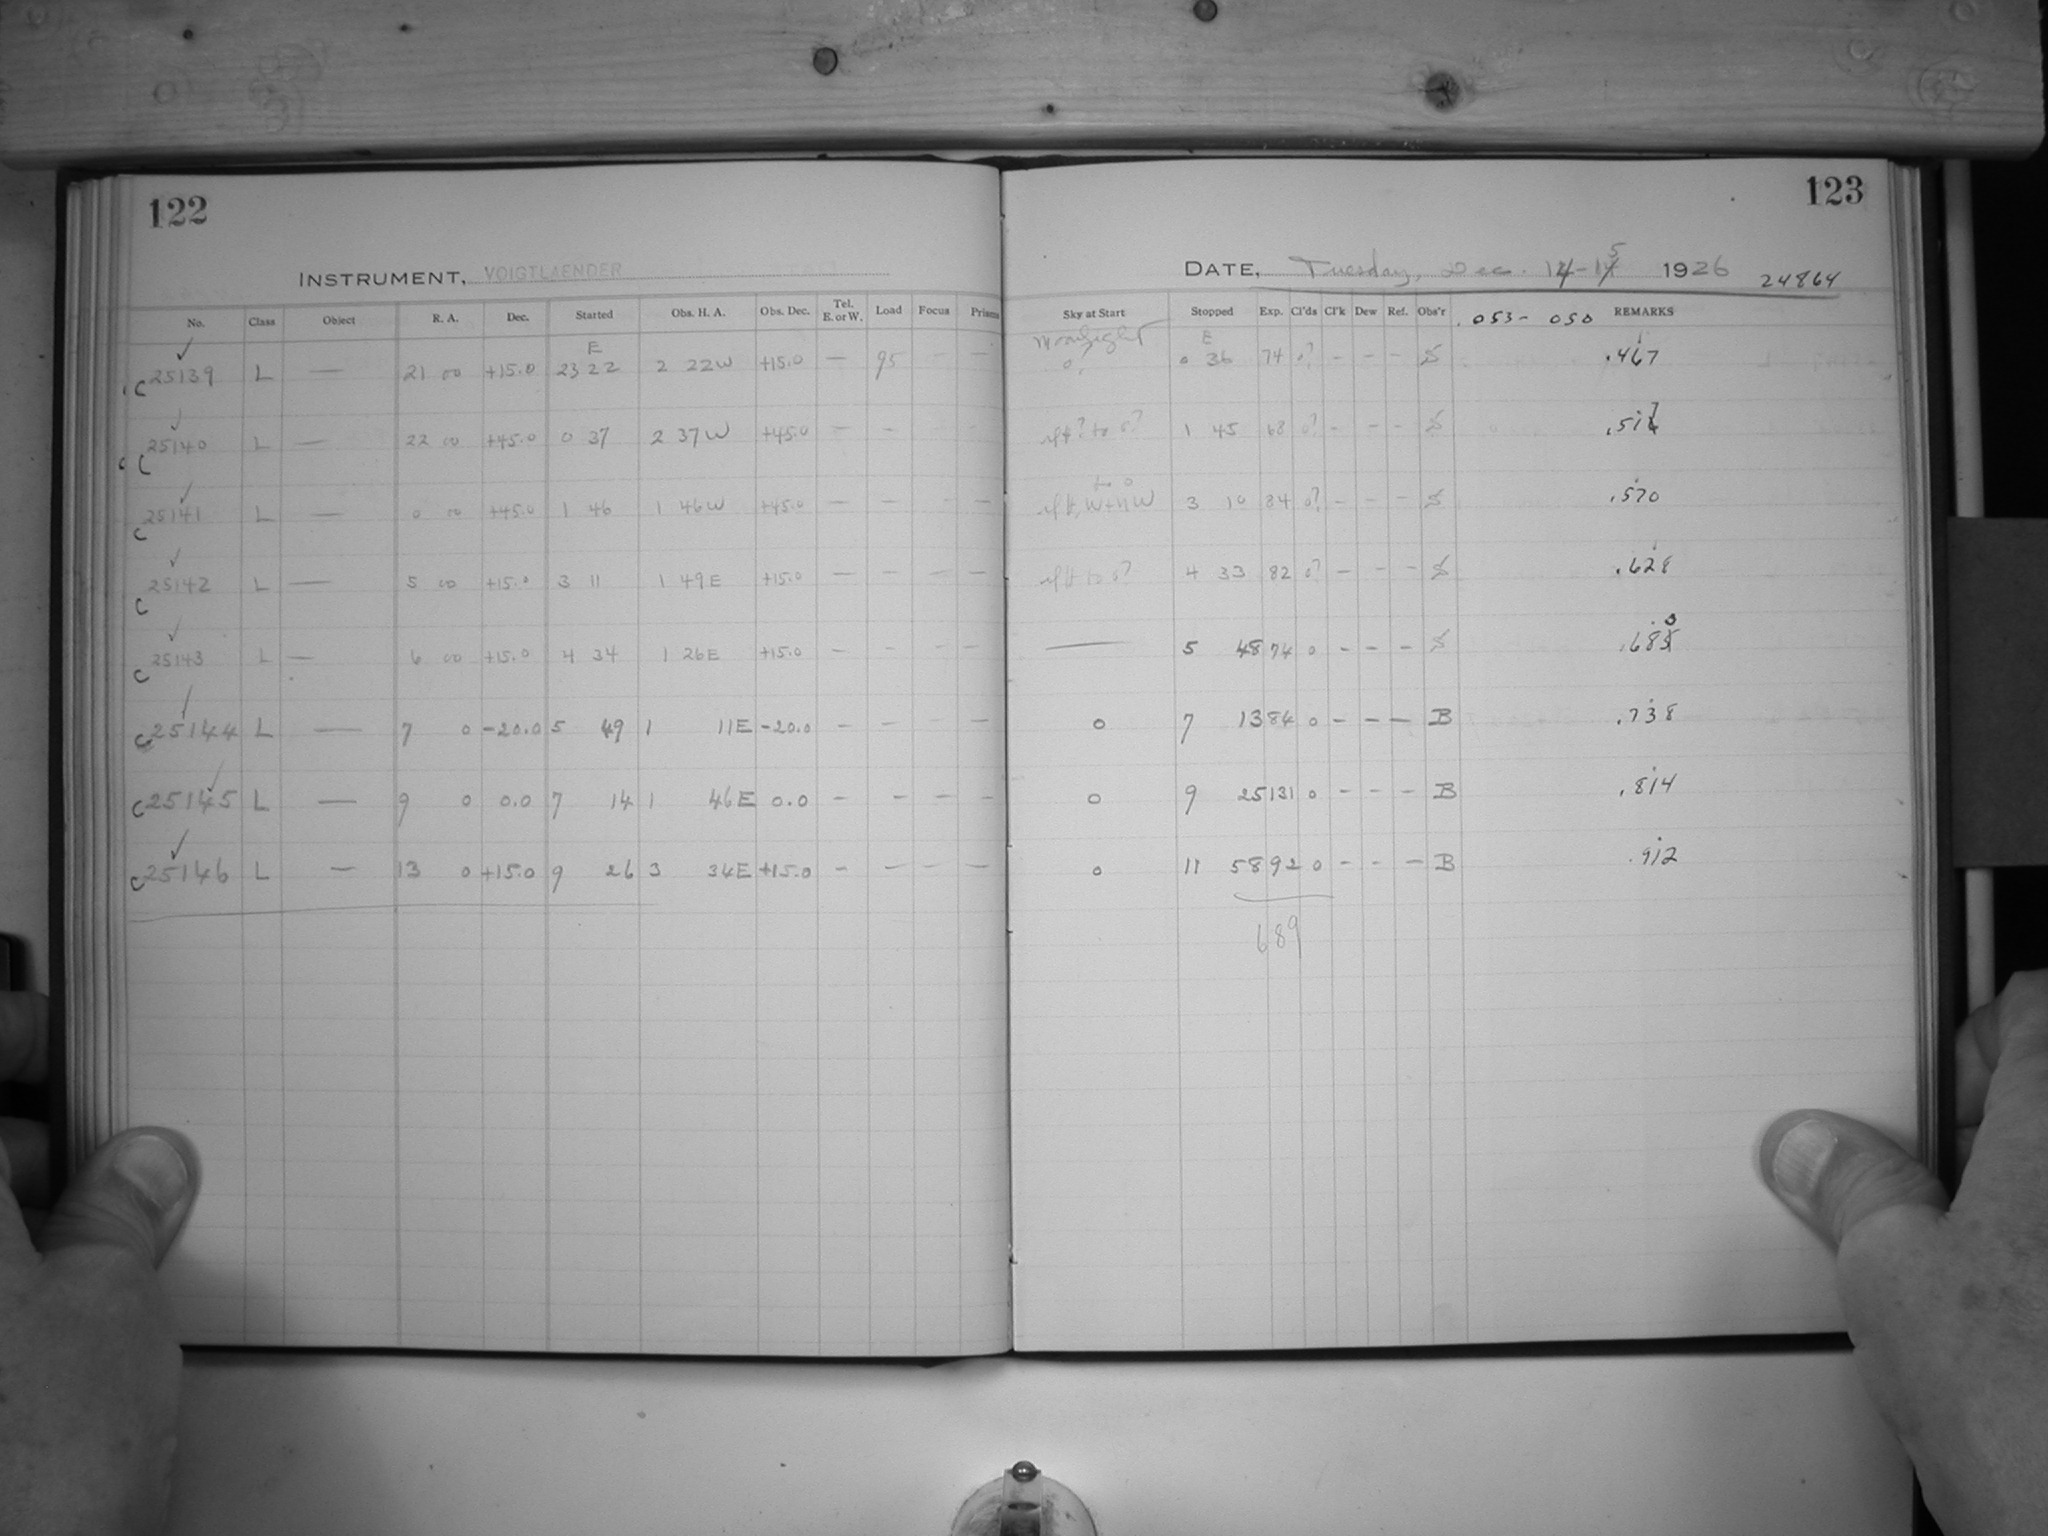 122
INSTRUMENT, VOIGTLAENDER
No. Class Object R. A. Dec. Started Obs. H. A. Obs. Dec. Tel. E. or W. Load Focus Prisms
C 25139 L — 21 00 +15.0 E 23 22 2 22W +15.0 — 95 — —
C 25140 L — 22 00 +45.0 0 37 2 37W +45.0 — — — —
C 25141 L — 0 00 +45.0 1 46 1 46W +45.0 — — — —
C 25142 L — 5 00 +15.0 3 11 1 49E +15.0 — — — —
C 25143 L — 6 00 +15.0 4 34 1 26E +15.0 — — — —
C 25144 L — 7 0 -20.0 5 49 1 11E -20.0 — — —
C 25145 L — 9 0 0.0 7 14 1 46E 0.0 — — — —
C 25146 L — 13 0 +15.0 9 26 3 34E +15.0 — — — —
123
DATE, Tuesday, Dec. 14-15 1926 24864
Sky at Start Stopped Exp. Cl'ds Cl'k Dew Ref. Obs'r .053- 050 REMARKS
Moonlight 0? E 0 36 74 0? - - - S .467
to 0? 1 45 68 0? - - - S .517
to 0 W+NW 3 10 84 0? - - - S .570
to 0? 4 33 82 0? - - - S .628
— 5 48 74 0 - - - S .683
0 7 13 84 0 - - - B .738
0 9 25 131 0 - - - B .814
0 11 58 92 0 - - - B .912
689